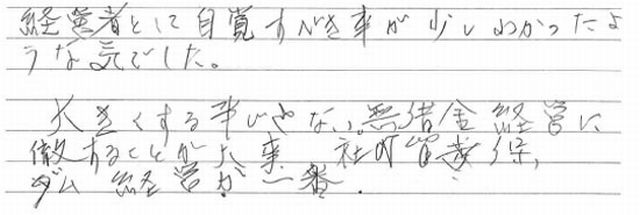 経営者として自覚すべき事が少しわかったよ
うな気でした。
大きくする事じゃない、無借金経営に
徹することが大事 社内留
ダム経営が一番.